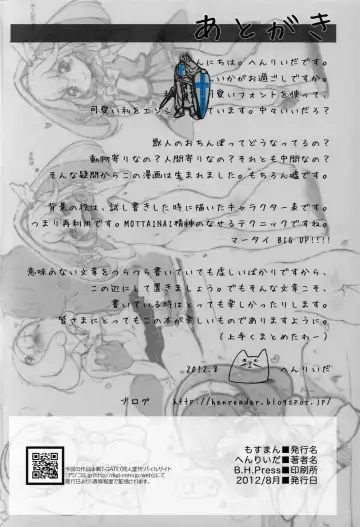 あとがき
んにちは。へんりいだです。
いかがお過ごしですか。
可愛いフォントを使って、
可愛い私をエンジ ています。中々いいだろ？
獣人のおちんぽってどうなってるの？
動物寄りなの？人間寄りなの？それとも中間なの？
そんな疑問からこの漫画は生まれました。もちろん嘘です。
背景の絵は、試し書きした時に描いたキャラクター表です。
つまり再利用です。MOTTAINAI精神のなせるテクニックですね。
マータイ BIG UP!!!!
意味のない文章をつらつら書いていても虚しいばかりですから、
この辺にして置きましょう。でもそんな文章こそ、
書いている時はとっても楽しかったりします。
皆さまにとってもこの本が楽しいものでありますように。
(上手くまとめたわー)
2012.8 へんりいだ
ブログ http://henreader.blogspot.jp/
もすまん■発行名
へんりいだ■著者名
B.H.Press■印刷所
2012/8月■発行日
今回の作品は㈱T-GATE(同人堂代)バイルサイト
「デジコミ.jp(http://digi-comi.jp/web)」にて
発行日より1週間程度で配信されます。